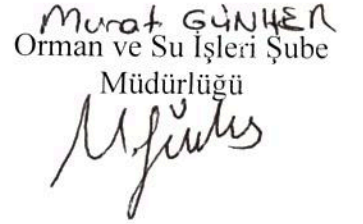 Murat GÜNHER
Orman ve Su İşleri Şube
Müdürlüğü